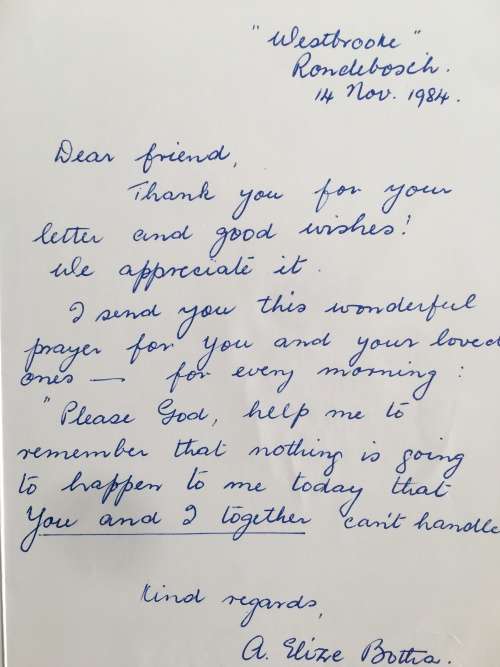 "Westbrooke"
Rondebosch.
14 Nov. 1984.
Dear friend,
Thank you for your
letter and good wishes!
We appreciate it.
I send you this wonderful
prayer for you and your loved
ones — for every morning:
"Please God, help me to
remember that nothing is going
to happen to me today that
You and I together can't handle
Kind regards,
A. Elize Botha.